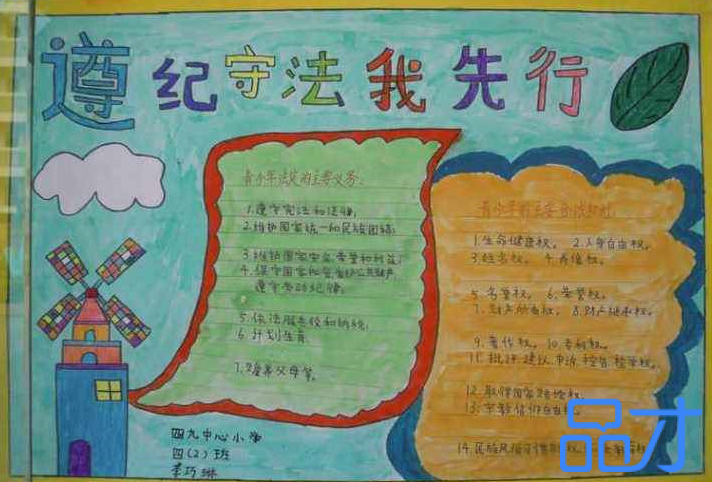 遵纪守法我先行
青少年法定的主要义务:
1.遵守宪法和法律;
2.维护国家统一和民族团结;
3.维护国家安全、荣誉和利益;
4.保守国家
遵守劳动纪律;
5.依法服兵役和纳税;
6.计划生育
7.赡养父母等。
青少年的主要
1.生命健康权。 2.人身自由权。
3.姓名权。 4.肖像权。
5.名誉权。 6.荣誉权。
7.财产所有权。 8.财产继承权。
9.著作权。 10.专利权。
11.批评、建议、申诉、控告、检举权。
12.取得国家赔偿权。
13.宗教信仰自由权。
14.民族风俗习惯
四九中心小学
四(2)班
李巧琳
品才